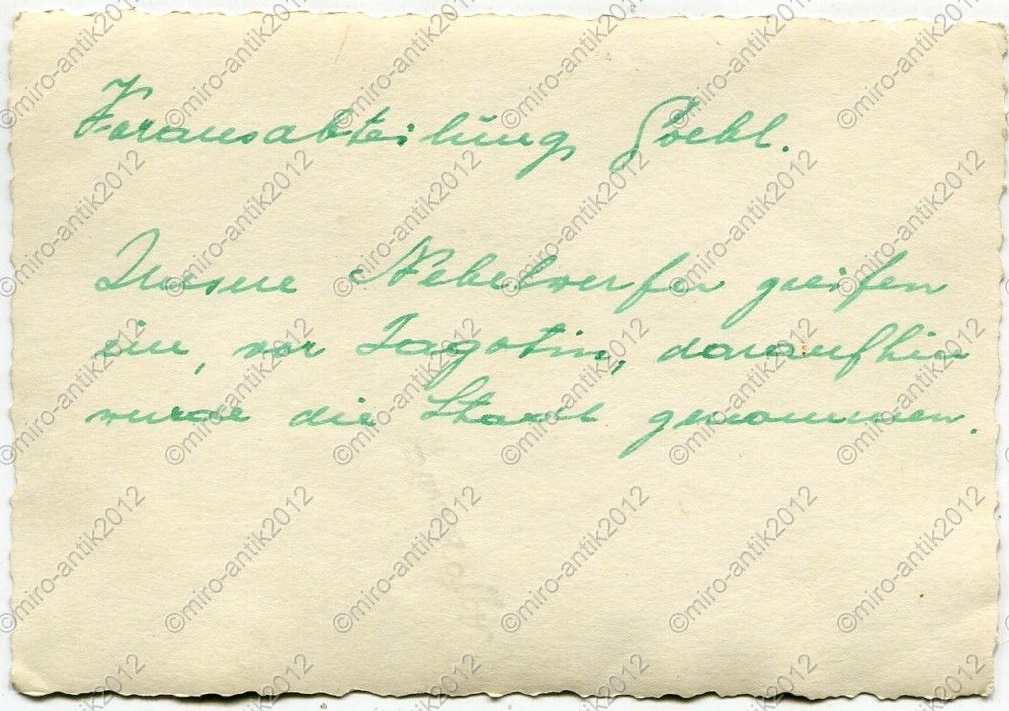 Vorausabteilung Goehl.
Unsere Nebelwerfer greifen
ein, vor Jagotin, daraufhin
wurde die Stadt genommen.
©miro-antik2012